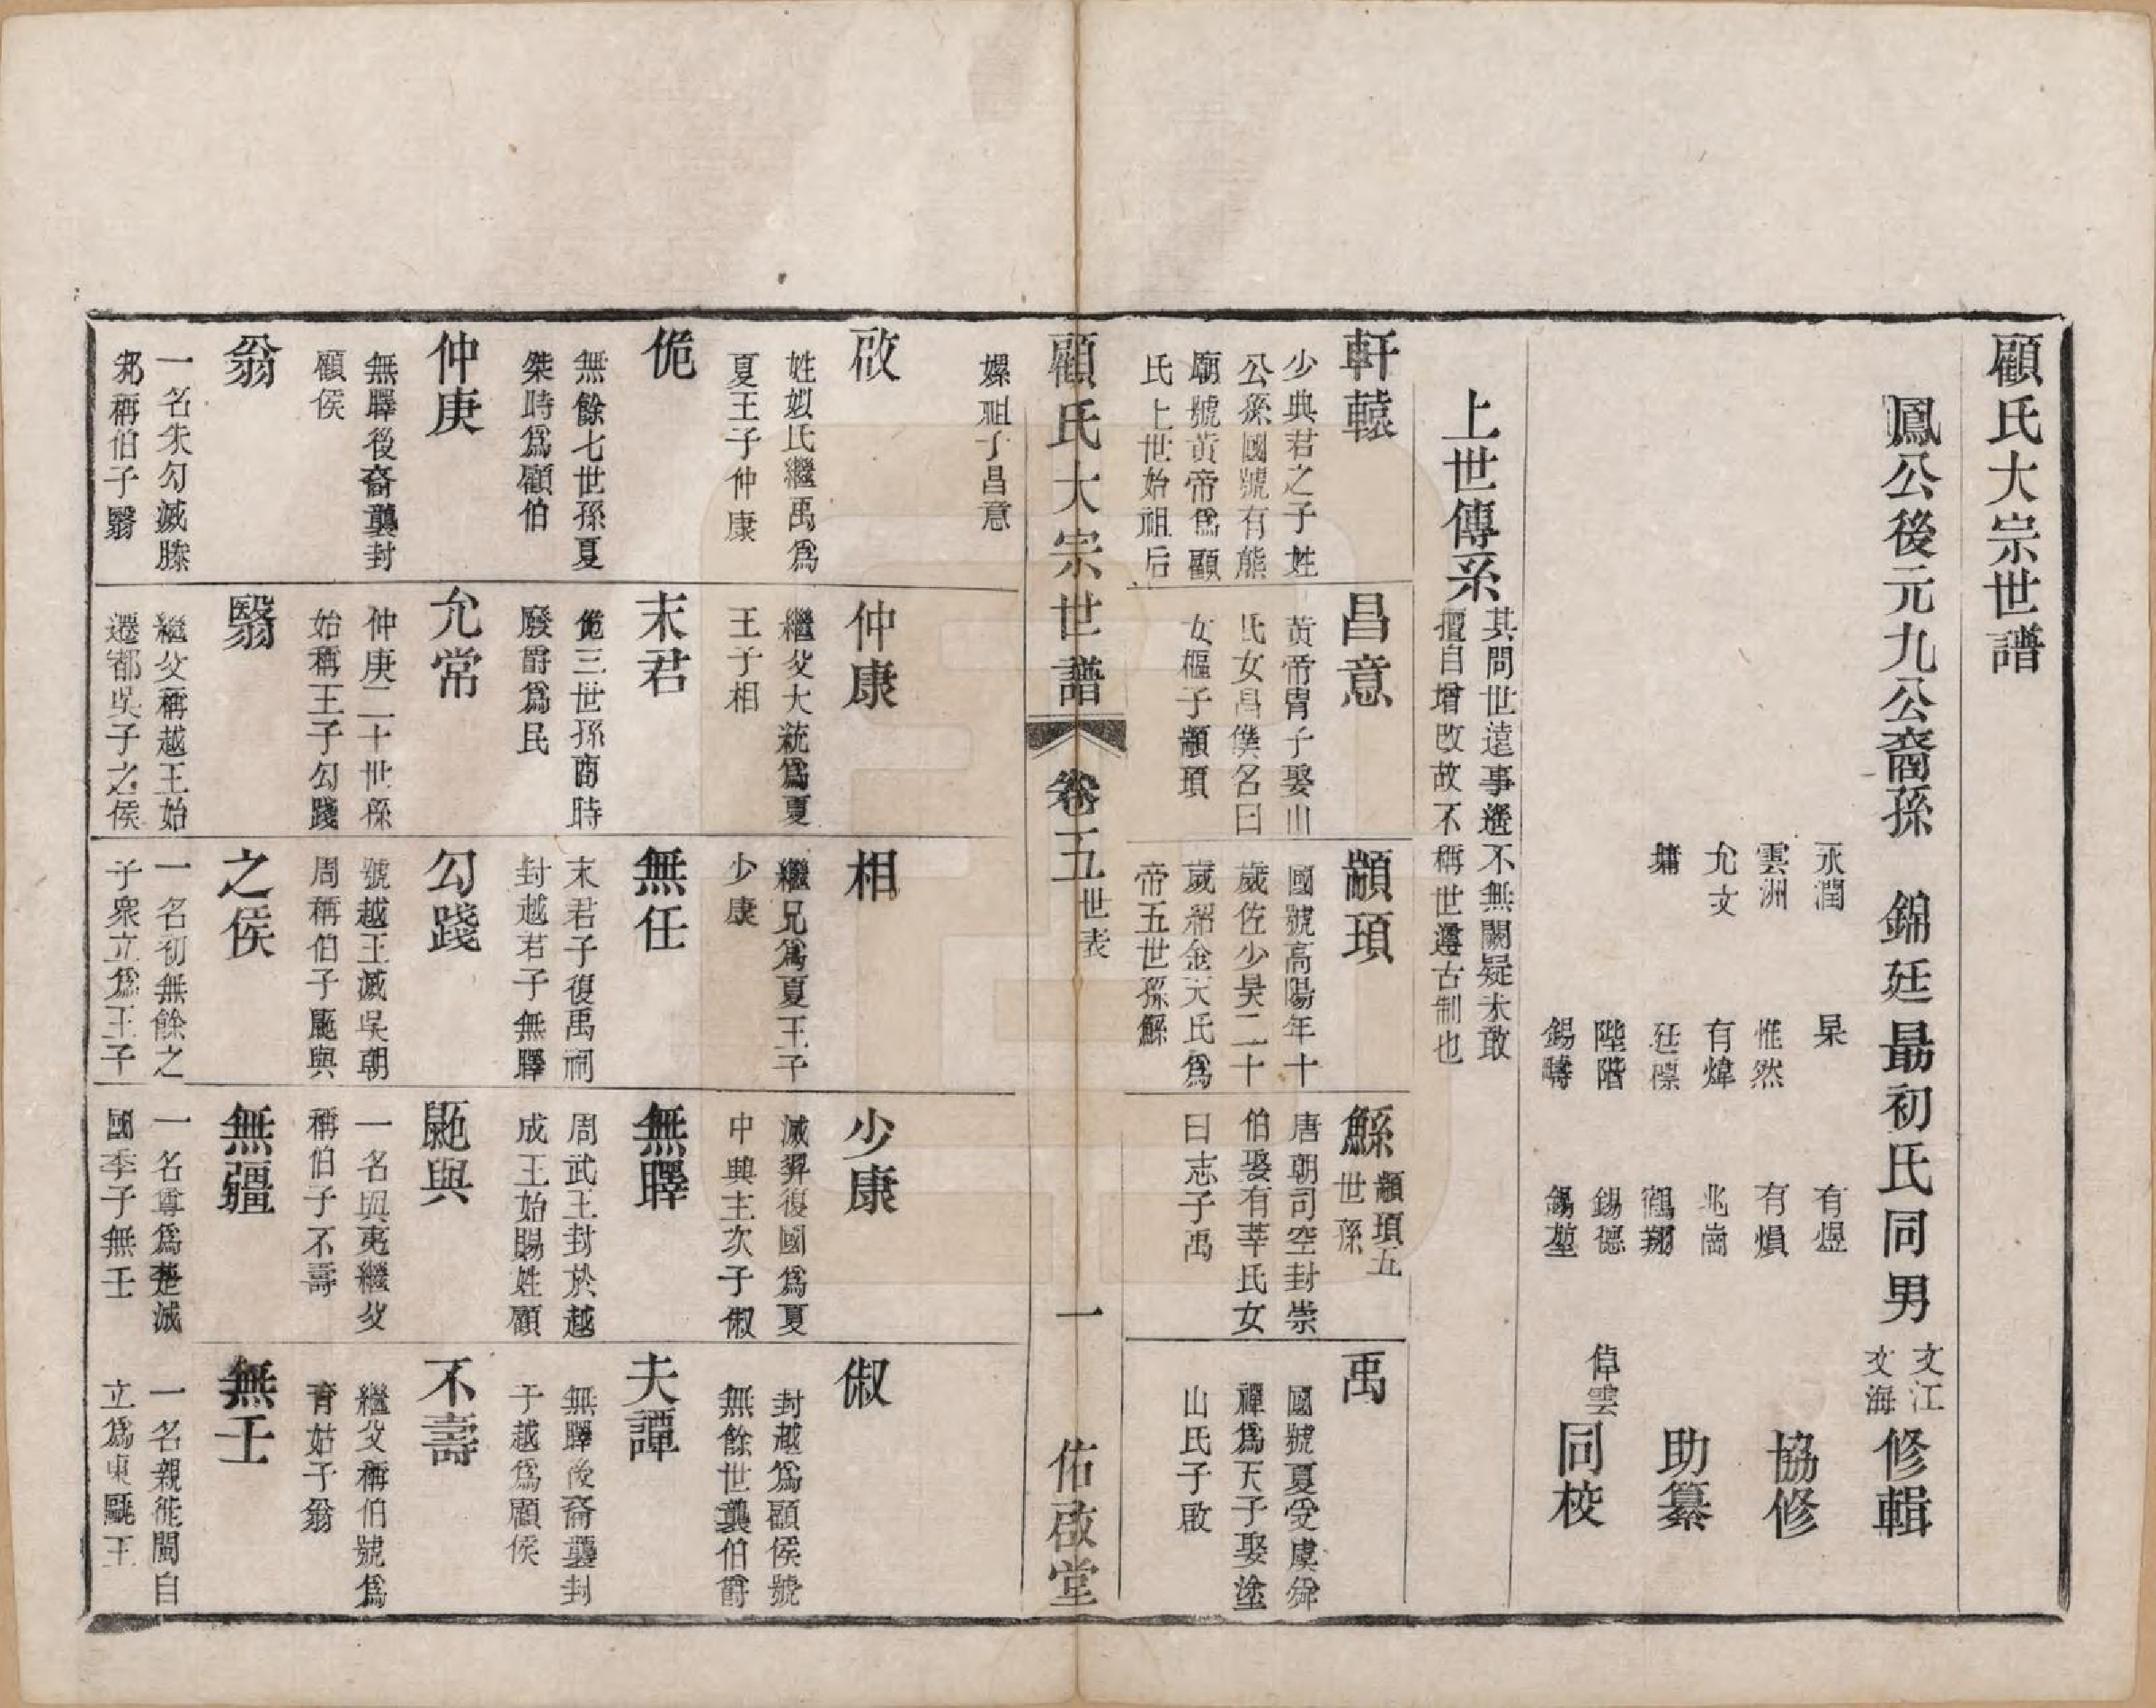 顧氏大宗世譜
鳳公後元九公裔孫 錦廷最初氏同男 文江 文海 修輯
永潤 杲 有煜
雲洲 惟然 有熉 協修
允文 有煒 兆崗
墉 廷標 鶴翔 助纂
陛階 錫德 倬雲
錫疇 錫堃 同校
上世傳系
其間世遠事遷不無闕疑未敢
擅自增改故不稱世遵古制也
軒轅
少典君之子姓
公孫國號有熊
廟號黃帝為顧
氏上世始祖后
昌意
黃帝胄子娶山
氏女昌僕名曰
女樞子顓頊
顓頊
國號高陽年十
歲佐少昊二十
歲紹金天氏為
帝五世孫鯀
鯀
顓頊五
世孫
唐朝司空封崇
伯娶有莘氏女
曰志子禹
禹
國號夏受虞舜
禪為天子娶塗
山氏子啟
顧氏大宗世譜 卷五 世表 一 佑啟堂
嫘祖子昌意
啟
姓姒氏繼禹為
夏王子仲康
仲康
繼父大統為夏
王子相
相
繼兄為夏王子
少康
少康
滅羿復國為夏
中興主次子俶
俶
封越為顧侯號
無餘世襲伯爵
佹
無餘七世孫夏
桀時為顧伯
末君
佹三世孫商時
廢爵為民
無任
末君子復禹祠
封越君子無驛
無驛
周武王封於越
成王始賜姓顧
夫譚
無驛後裔襲封
于越為顧侯
仲庚
無驛後裔襲封
顧侯
允常
仲庚二十世孫
始稱王子勾踐
勾踐
號越王滅吳朝
周稱伯子鼫與
鼫與
一名與夷繼父
稱伯子不壽
不壽
繼父稱伯號為
育姑子翁
翁
一名朱勾滅滕
邾稱伯子翳
翳
繼父稱越王始
遷都吳子之侯
之侯
一名初無餘之
子眾立為王子
無疆
一名尊為楚滅
國季子無壬
無壬
一名親徙閩自
立為東甌王